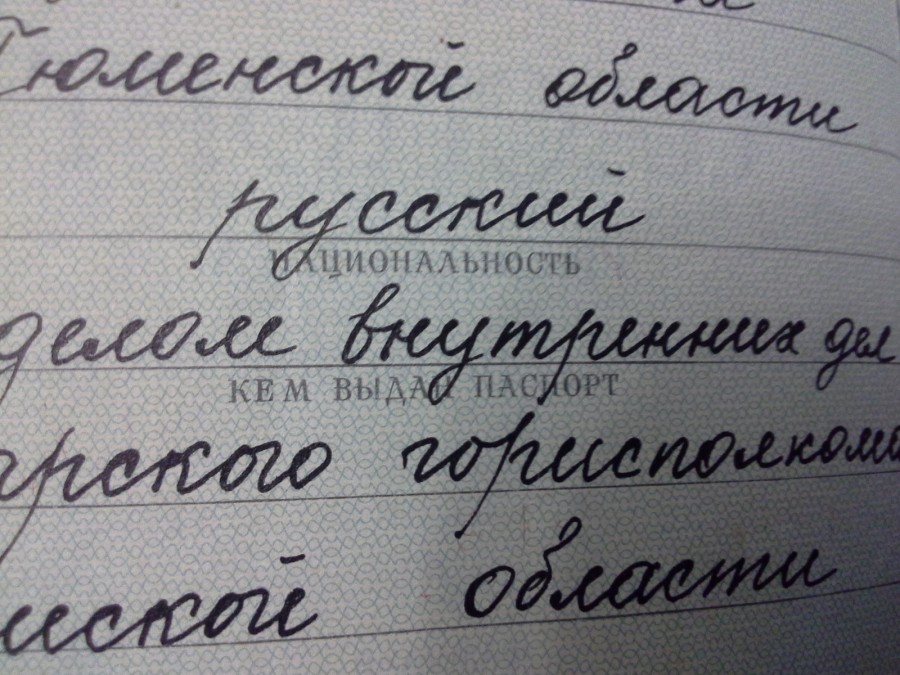 Тюменской области
русский
НАЦИОНАЛЬНОСТЬ
делом внутренних дел
КЕМ ВЫДАН ПАСПОРТ
арского горисполкома
ской области